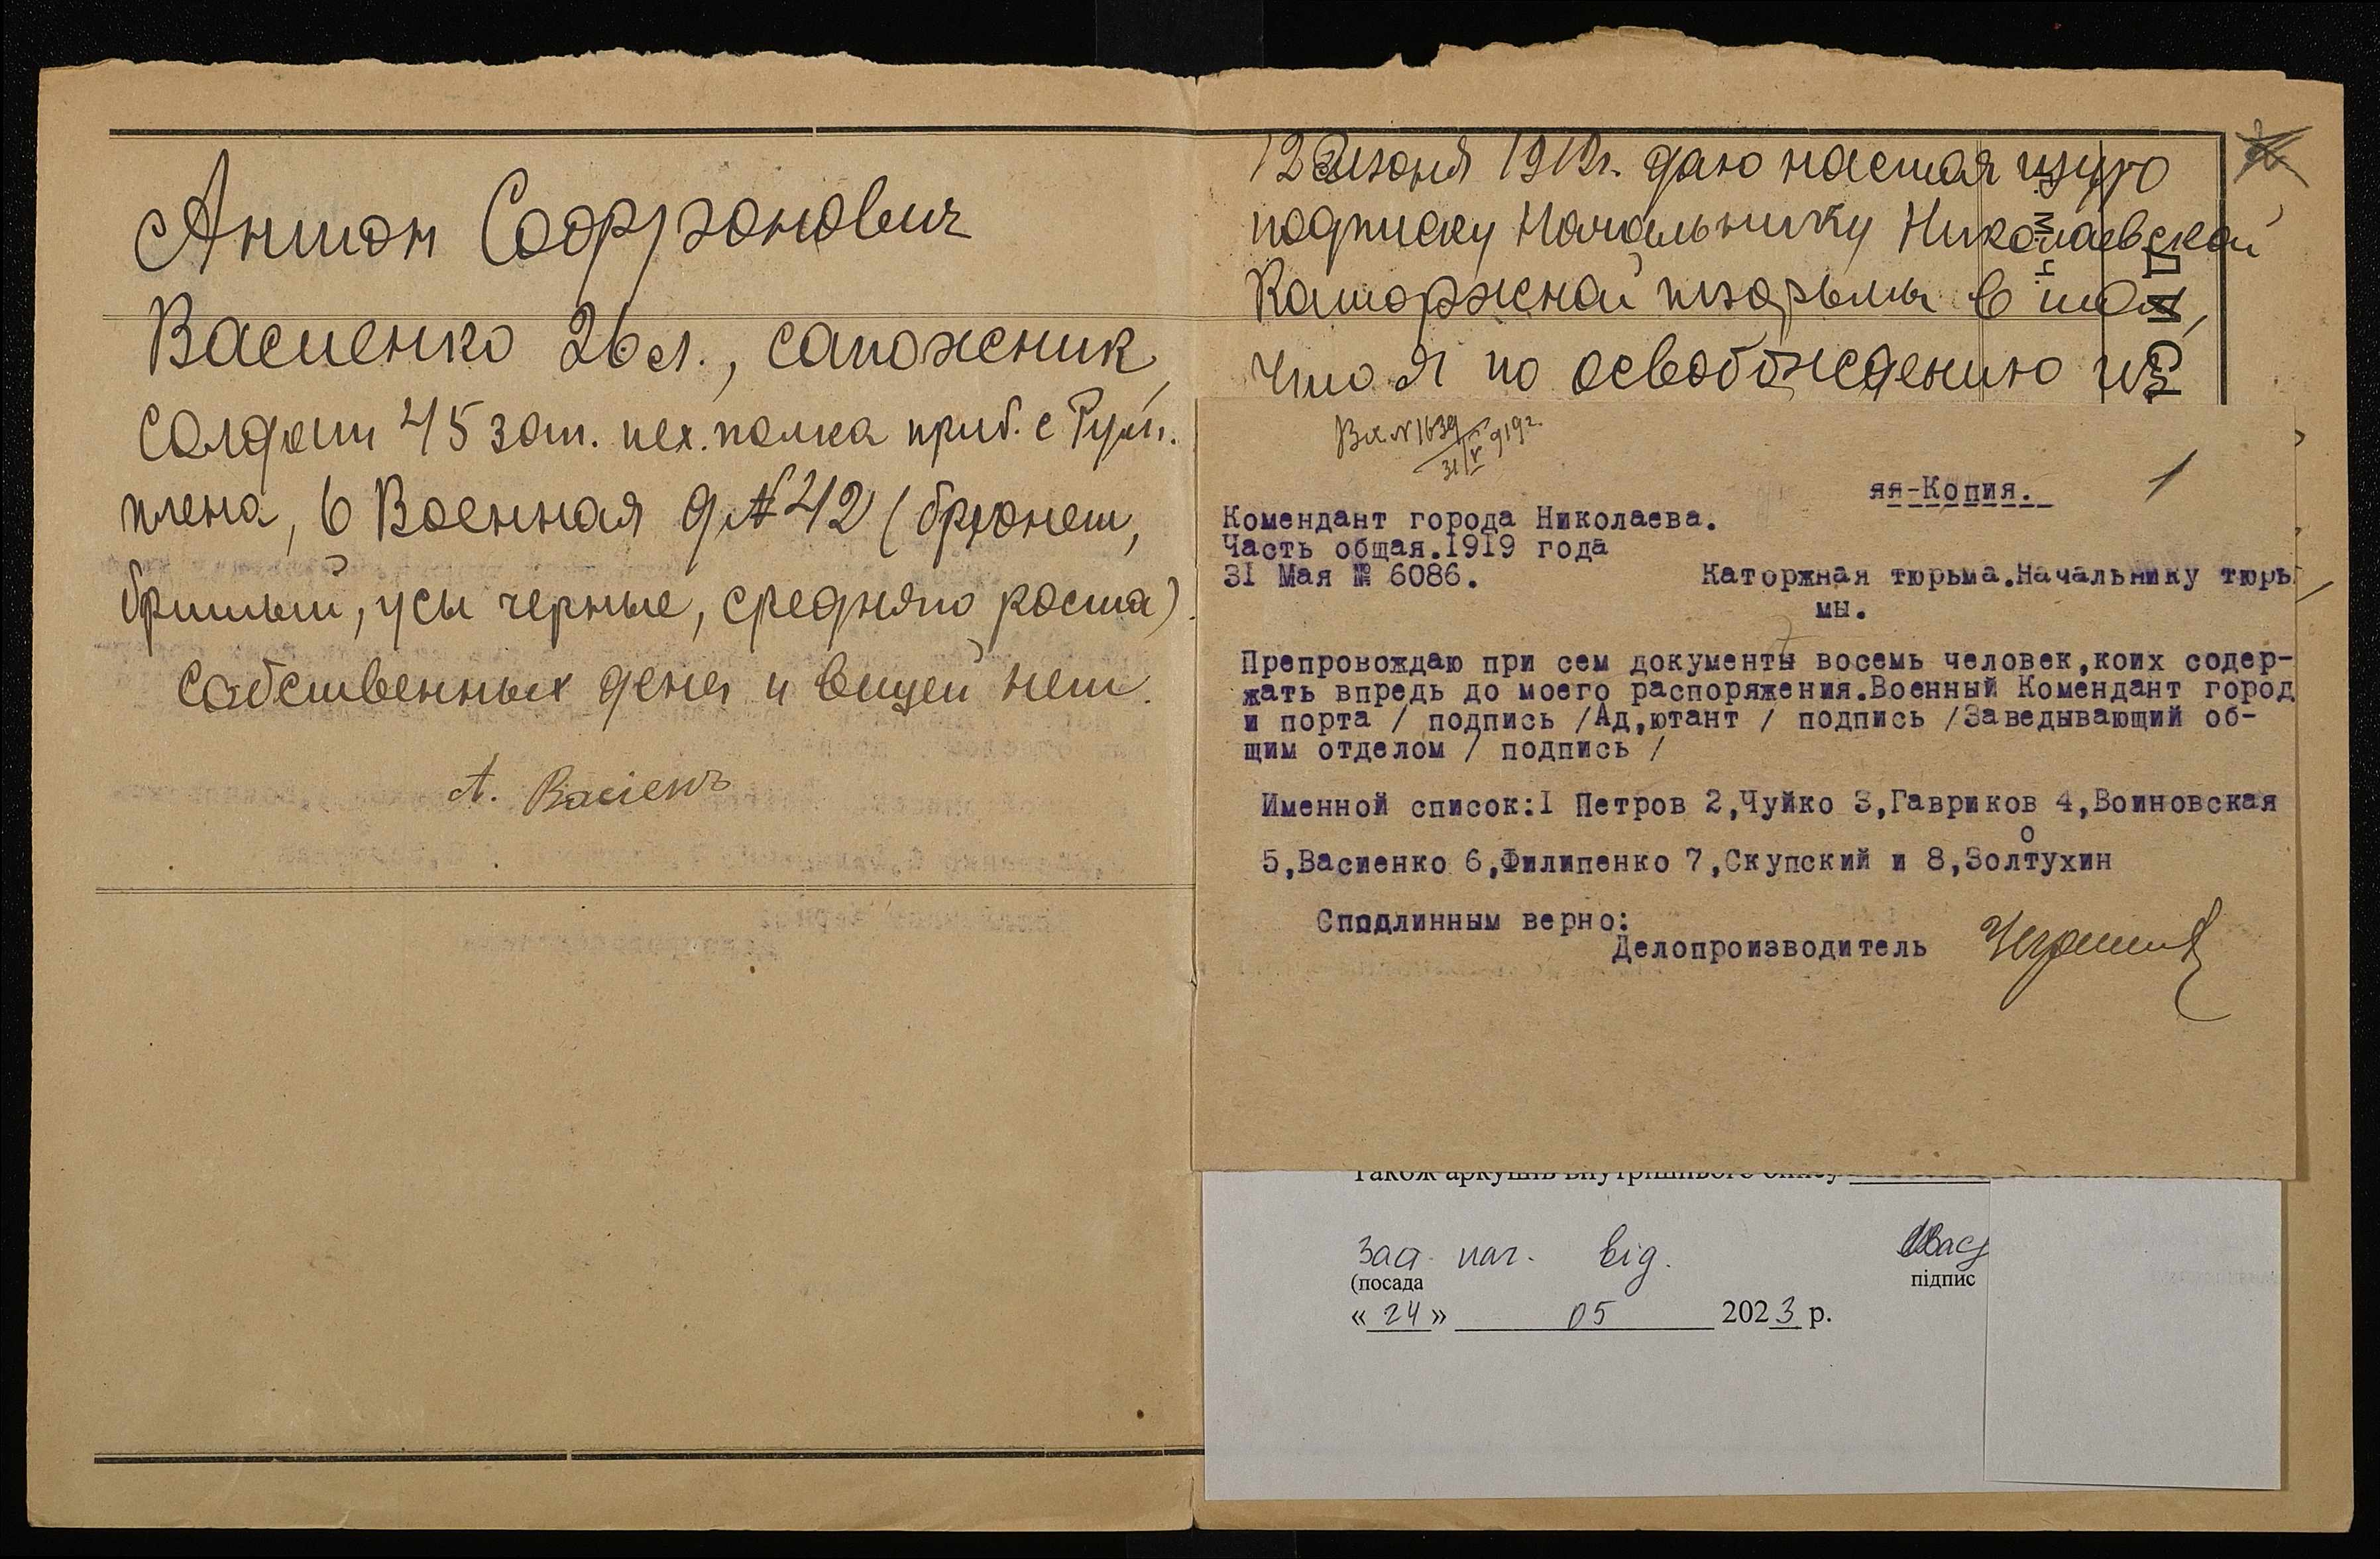 Антон Софронович
Васиенко 26 л., сапожник,
солдат 45 зап. пех. полка приб. с Рум.
плена, 6 Военная д № 42 (брюнет,
бритый, усы черные, средняго роста).
Собственных денег и вещей нет.
А. Васіенъ
12 июня 1919г. даю настоящую
подписку Начальнику Николаевской
Каторжной тюрьмы в том,
что я по освобождению из
Вх. № 1639
31/V 919 г.
яя-Копия.
1
Комендант города Николаева.
Часть общая.1919 года
31 Мая № 6086.
Каторжная тюрьма.Начальнику тюрь
мы.
Препровождаю при сем документы восемь человек,коих содер-
жать впредь до моего распоряжения.Военный Комендант город
и порта / подпись /Ад,ютант / подпись /Заведывающий об-
щим отделом / подпись /
Именной список:1 Петров 2,Чуйко 3,Гавриков 4,Воиновская
5,Васиенко 6,Филипенко 7,Скупский и 8,Золотухин
Сподлинным верно:
Делопроизводитель
також аркушів внутрішнього опису
Зас. нач. від.
(посада
підпис
« 24 » 05 2023 р.